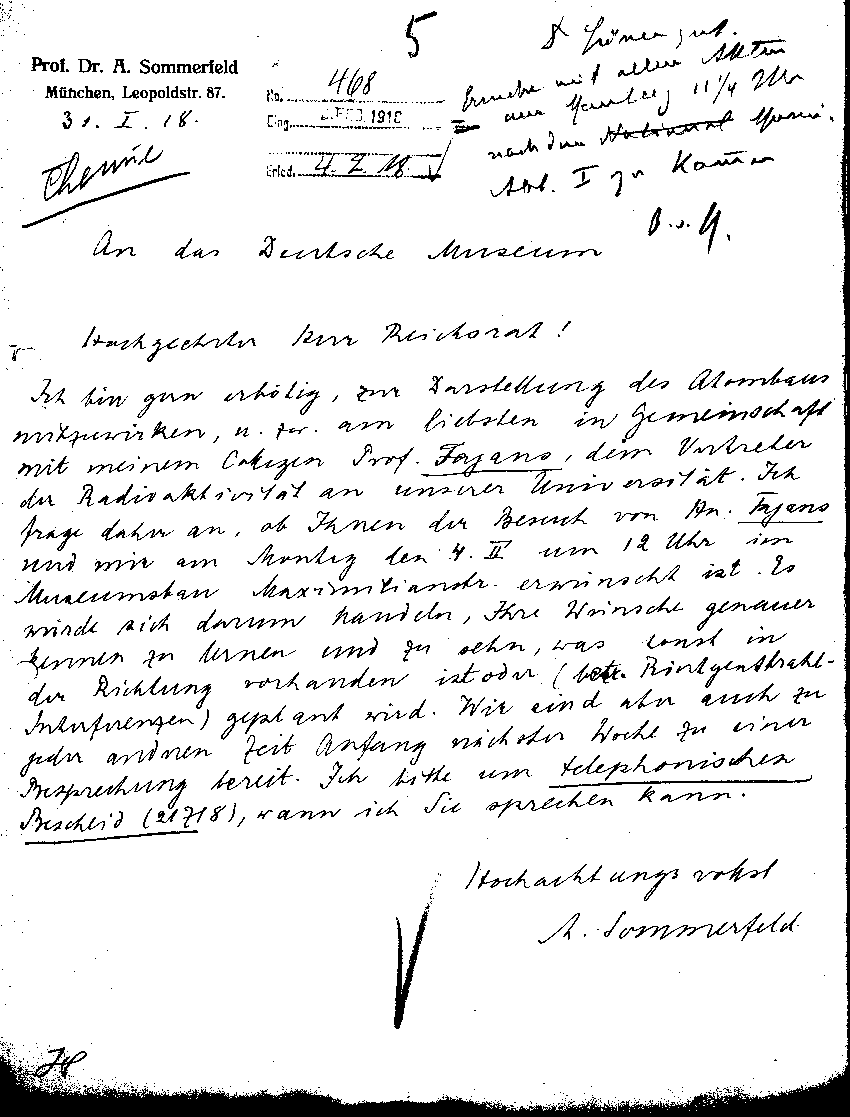 5
Prof. Dr. A. Sommerfeld
München, Leopoldstr. 87.
31. I. 18.
Chemie
No. 468
Eing. 2. FEB. 1918
Erled. 4. 2. 18
mit allen Akten
am Montag 11 1/4 Uhr
nach dem National
Abt. I zu
An das Deutsche Museum
Hochgeehrter Herr Reichsrat!
Ich bin gern erbötig, zur Darstellung des Atombaus
mitzuwirken, u. zw. am liebsten in Gemeinschaft
mit meinem Collegen Prof. Fajans, dem Vertreter
der Radioaktivität an unserer Universität. Ich
frage daher an, ob Ihnen der Besuch von Hn. Fajans
und mir am Montag den 4. II um 12 Uhr im
Museumsbau Maximilianstr. erwünscht ist. Es
würde sich darum handeln, Ihre Wünsche genauer
kennen zu lernen und zu sehn, was sonst in
der Richtung vorhanden ist oder (betr. Röntgenstrahl-
Interferenzen) geplant wird. Wir sind aber auch zu
jeder andren Zeit Anfang nächster Woche zu einer
Besprechung bereit. Ich bitte um telephonischen
Bescheid (21718), wann ich Sie sprechen kann.
Hochachtungsvollst
A. Sommerfeld